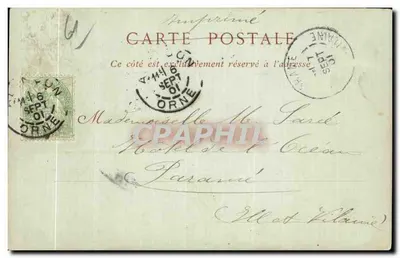 Imprimé
CARTE POSTALE
Ce côté est exclusivement réservé à l'adresse
6
SEPT
01
ORNE
6
SEPT
01
ORNE
SEPT
01
Mademoiselle M.
Hotel de l'Océan
CPARAMA
Paramé
Ille et Vilaine